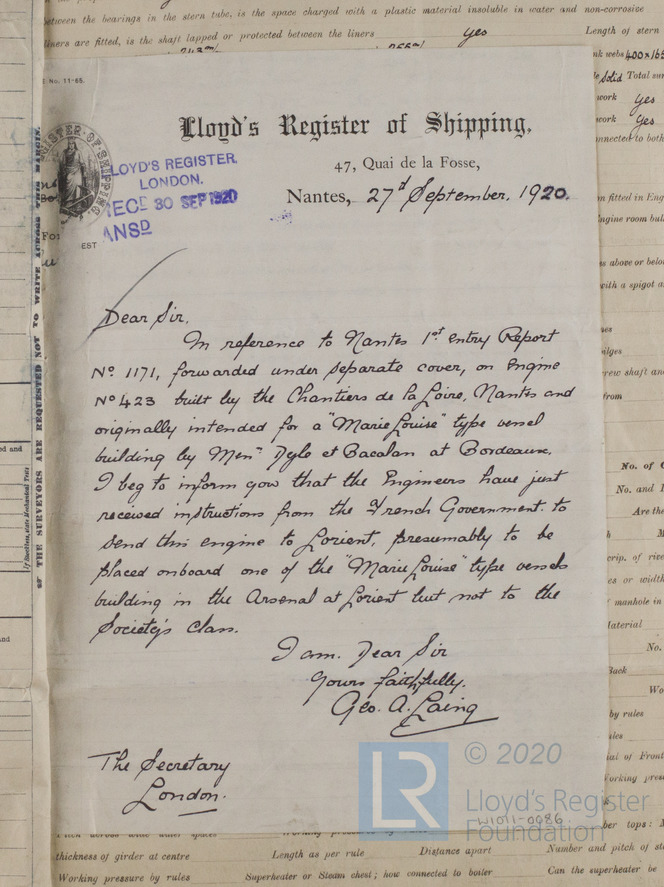 between the bearings in the stern tube, is the space charged with a plastic material insoluble in water and non-corrosive
liners are fitted, is the shaft lapped or protected between the liners yes Length of stern
nk webs 400×165
solid Total sur
work yes
work yes
onnected to both
No. 11-65.
Lloyd's Register of Shipping,
47, Quai de la Fosse,
Nantes, 27th September, 1920.
LLOYD'S REGISTER.
LONDON.
REC^D 30 SEP 1920
ANS^D
EST
REGISTER OF SHIPPING
OF THE SURVEYORS ARE REQUESTED NOT TO WRITE ACROSS THIS MARGIN.
Dear Sir,
In reference to Nantes 1st entry Report
No 1171, forwarded under separate cover, on Engine
No 423 built by the Chantiers de la Loire, Nantes and
originally intended for a "Marie Louise" type vessel
building by Messrs Dyle et Bacalan at Bordeaux,
I beg to inform you that the Engineers have just
received instructions from the French Government to
send this engine to Lorient, presumably to be
placed onboard one of the "Marie Louise" type vessels
building in the Arsenal at Lorient but not to the
Society's Class.
I am, Dear Sir
Yours faithfully,
Geo. A. Laing
The Secretary
London.
n fitted in Eng
ngine room bul
s above or belo
with a spigot a
ilges
rew shaft and
from
No. of
No. and
Are the
crip. of rive
es or width
manhole in
aterial
No.
Back
by rules
ules
ial of Front
orking press
LR
© 2020
Lloyd's Register
Foundation
W1011-0086
ber tops: M
thickness of girder at centre Length as per rule Distance apart Number and pitch of st
Working pressure by rules Superheater or Steam chest; how connected to boiler Can the superheater be